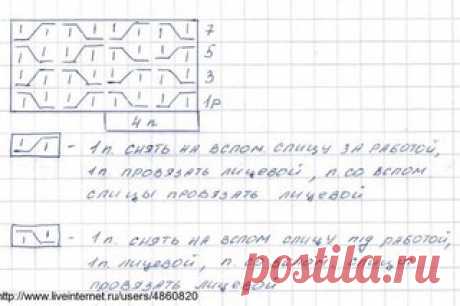 7
5
3
1р
4 п
- 1 п. СНЯТЬ НА ВСПОМ СПИЦУ ЗА РАБОТОЙ,
1п ПРОВЯЗАТЬ ЛИЦЕВОЙ, п. СО ВСПОМ
СПИЦЫ ПРОВЯЗАТЬ ЛИЦЕВОЙ
- 1 п. СНЯТЬ НА ВСПОМ СПИЦУ ПІД РАБОТОЙ,
1п. ЛИЦЕВОЙ, п. СО
ПРОВЯЗАТЬ ЛИЦЕВОЙ
postila.ru
ttp://www.liveinternet.ru/users/4860820